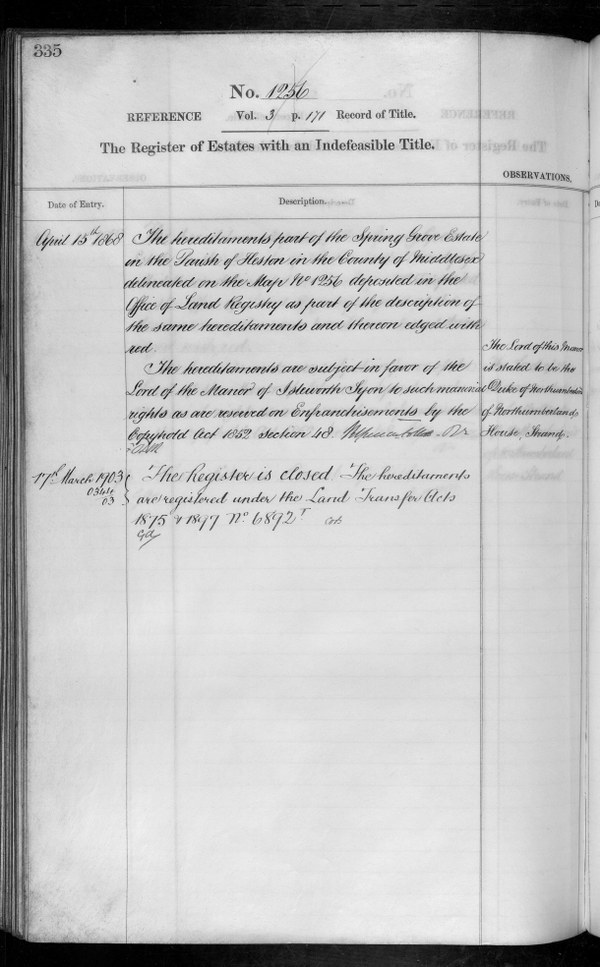 335
No. 1256
REFERENCE Vol. 3 p. 171 Record of Title.
The Register of Estates with an Indefeasible Title.
OBSERVATIONS.
Date of Entry.
Description.
April 15th 1868
The hereditaments part of the Spring Grove Estate
in the Parish of Heston in the County of Middlesex
delineated on the Map No 1256 deposited in the
Office of Land Registry as part of the description of
the same hereditaments and thereon edged with
red.
The hereditaments are subject in favor of the
Lord of the Manor of Isleworth Syon to such manorial
rights as are reserved on Enfranchisements by the
Copyhold Act 1852 section 48.
The Lord of this Manor
is stated to be the
Duke of Northumberland
of Northumberland
House, Strand.
17th March 1903
0344
03
The Register is closed. The hereditaments
are registered under the Land Transfer Acts
1875 & 1897 No. 6892